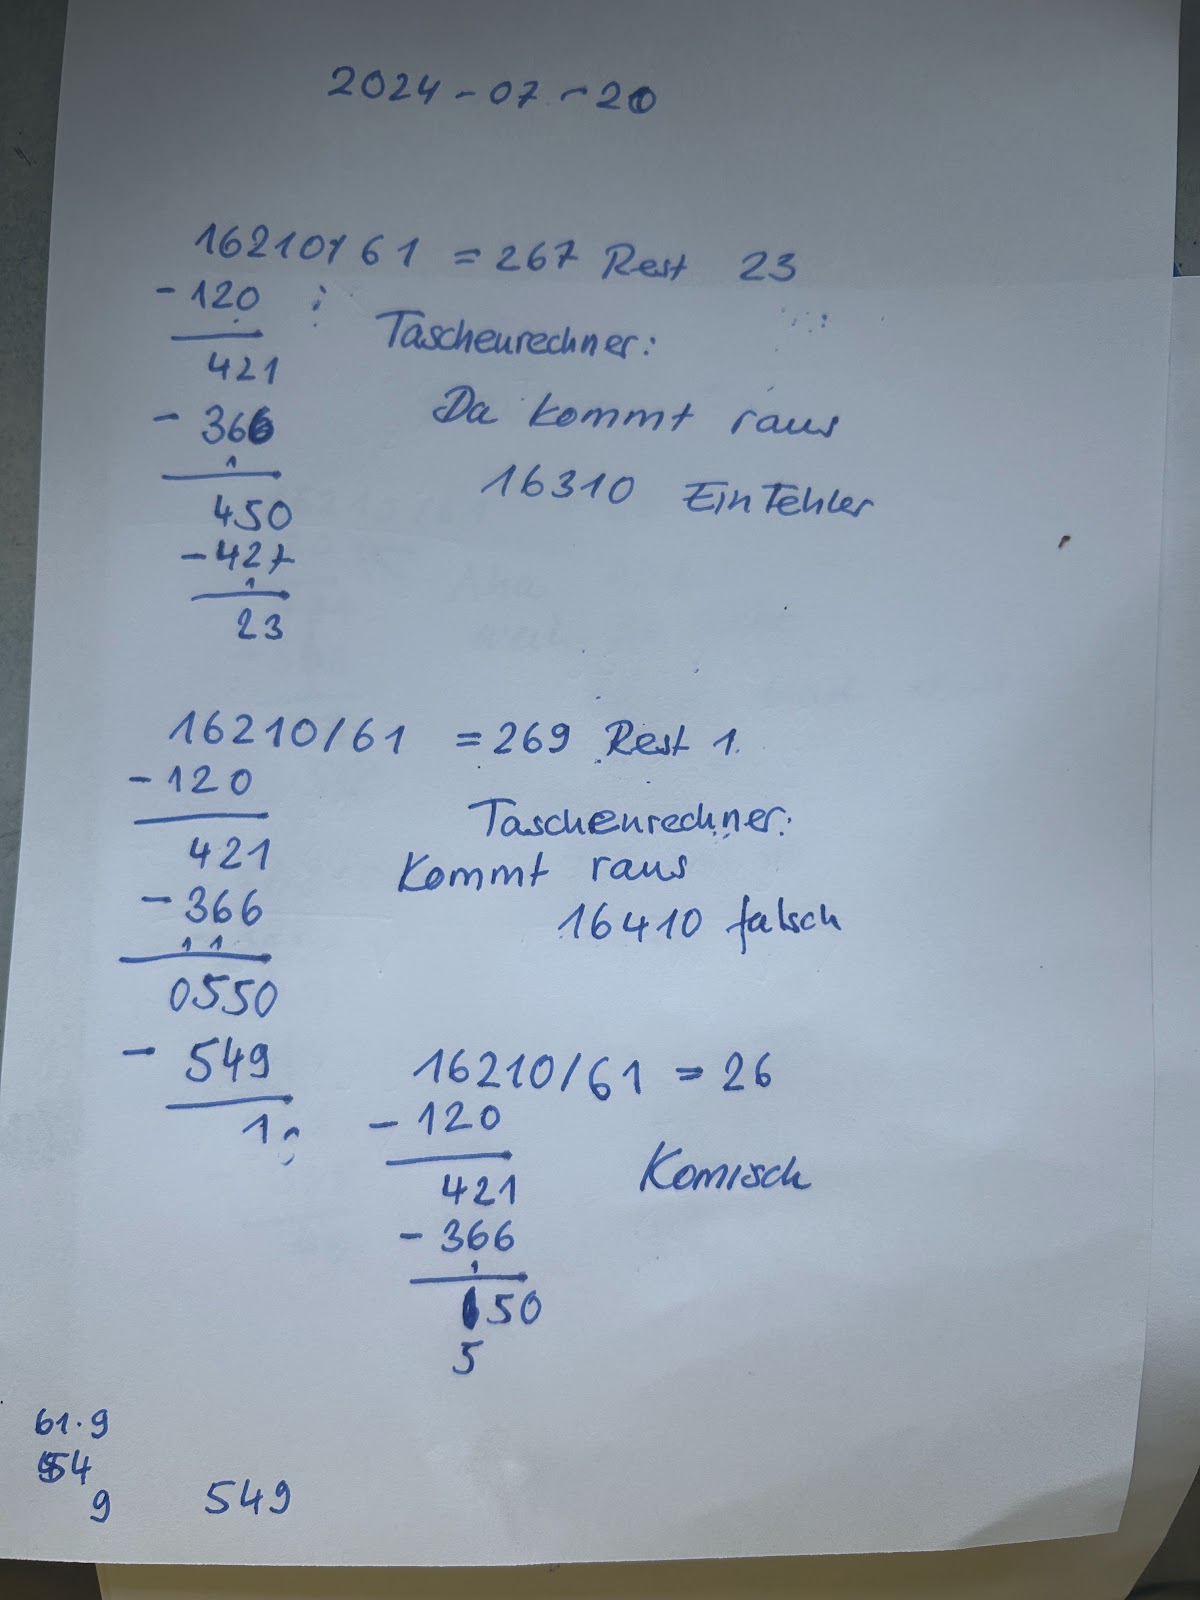 2024-07-20
16210/61 = 267 Rest 23
-120
Taschenrechner:
421
Da kommt raus
-366
1
16310 Ein Fehler
450
-427
1
23
16210/61 = 269 Rest 1.
-120
Taschenrechner:
421
Kommt raus
-366
16410 falsch
11
0550
-549
1
16210/61 = 26
-120
421
Komisch
-366
1
50
5
61·9
54
9
549